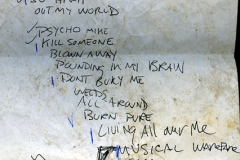 OUT MY WORLD
PSYCHO MIKE
KILL SOMEONE
BLOWN AWAY
POUNDING IN MY BRAIN
DONT BURY ME
WEEDS
ALL AROUND
BURN PURE
LIVING All over Me
MUSICAL WARFARE